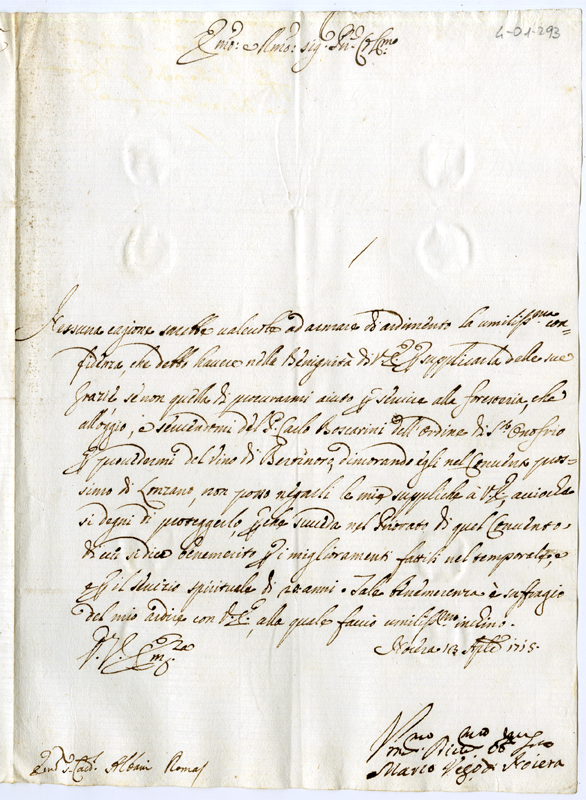 4-01-293
Emo: e Rmo: sig.
Nessuna cagione sarebbe valevole ad armare di ardimento la umiliss.ma con=
fidenza, che debbo havere nella Benignità di V. E. supplicarla delle sue
grazie se non quella di procurarmi aiuto servire alla foresteria, che
alloggio; e servendomi del P. Carlo Boscarini dell'ordine di S.to Onofrio
provedermi del vino di Bertinoro, dimorando egli nel Convento pros=
simo di Lonzano, non posso negarli le mie suppliche à V. E. acciochè
si degni di proteggerlo, succeda nel Priorato di quel Convento,
di cui si dice benemerito i miglioramenti fattili nel temporale,
e il servizio spirituale di anni. Tale benemerenza è suffragio
del mio ardire con V. E., alla quale faccio umiliss.mo inchino.
Di V. E.
Aple 1715.
Marco Vigo di Nocera
Sig. Card. Albani Roma